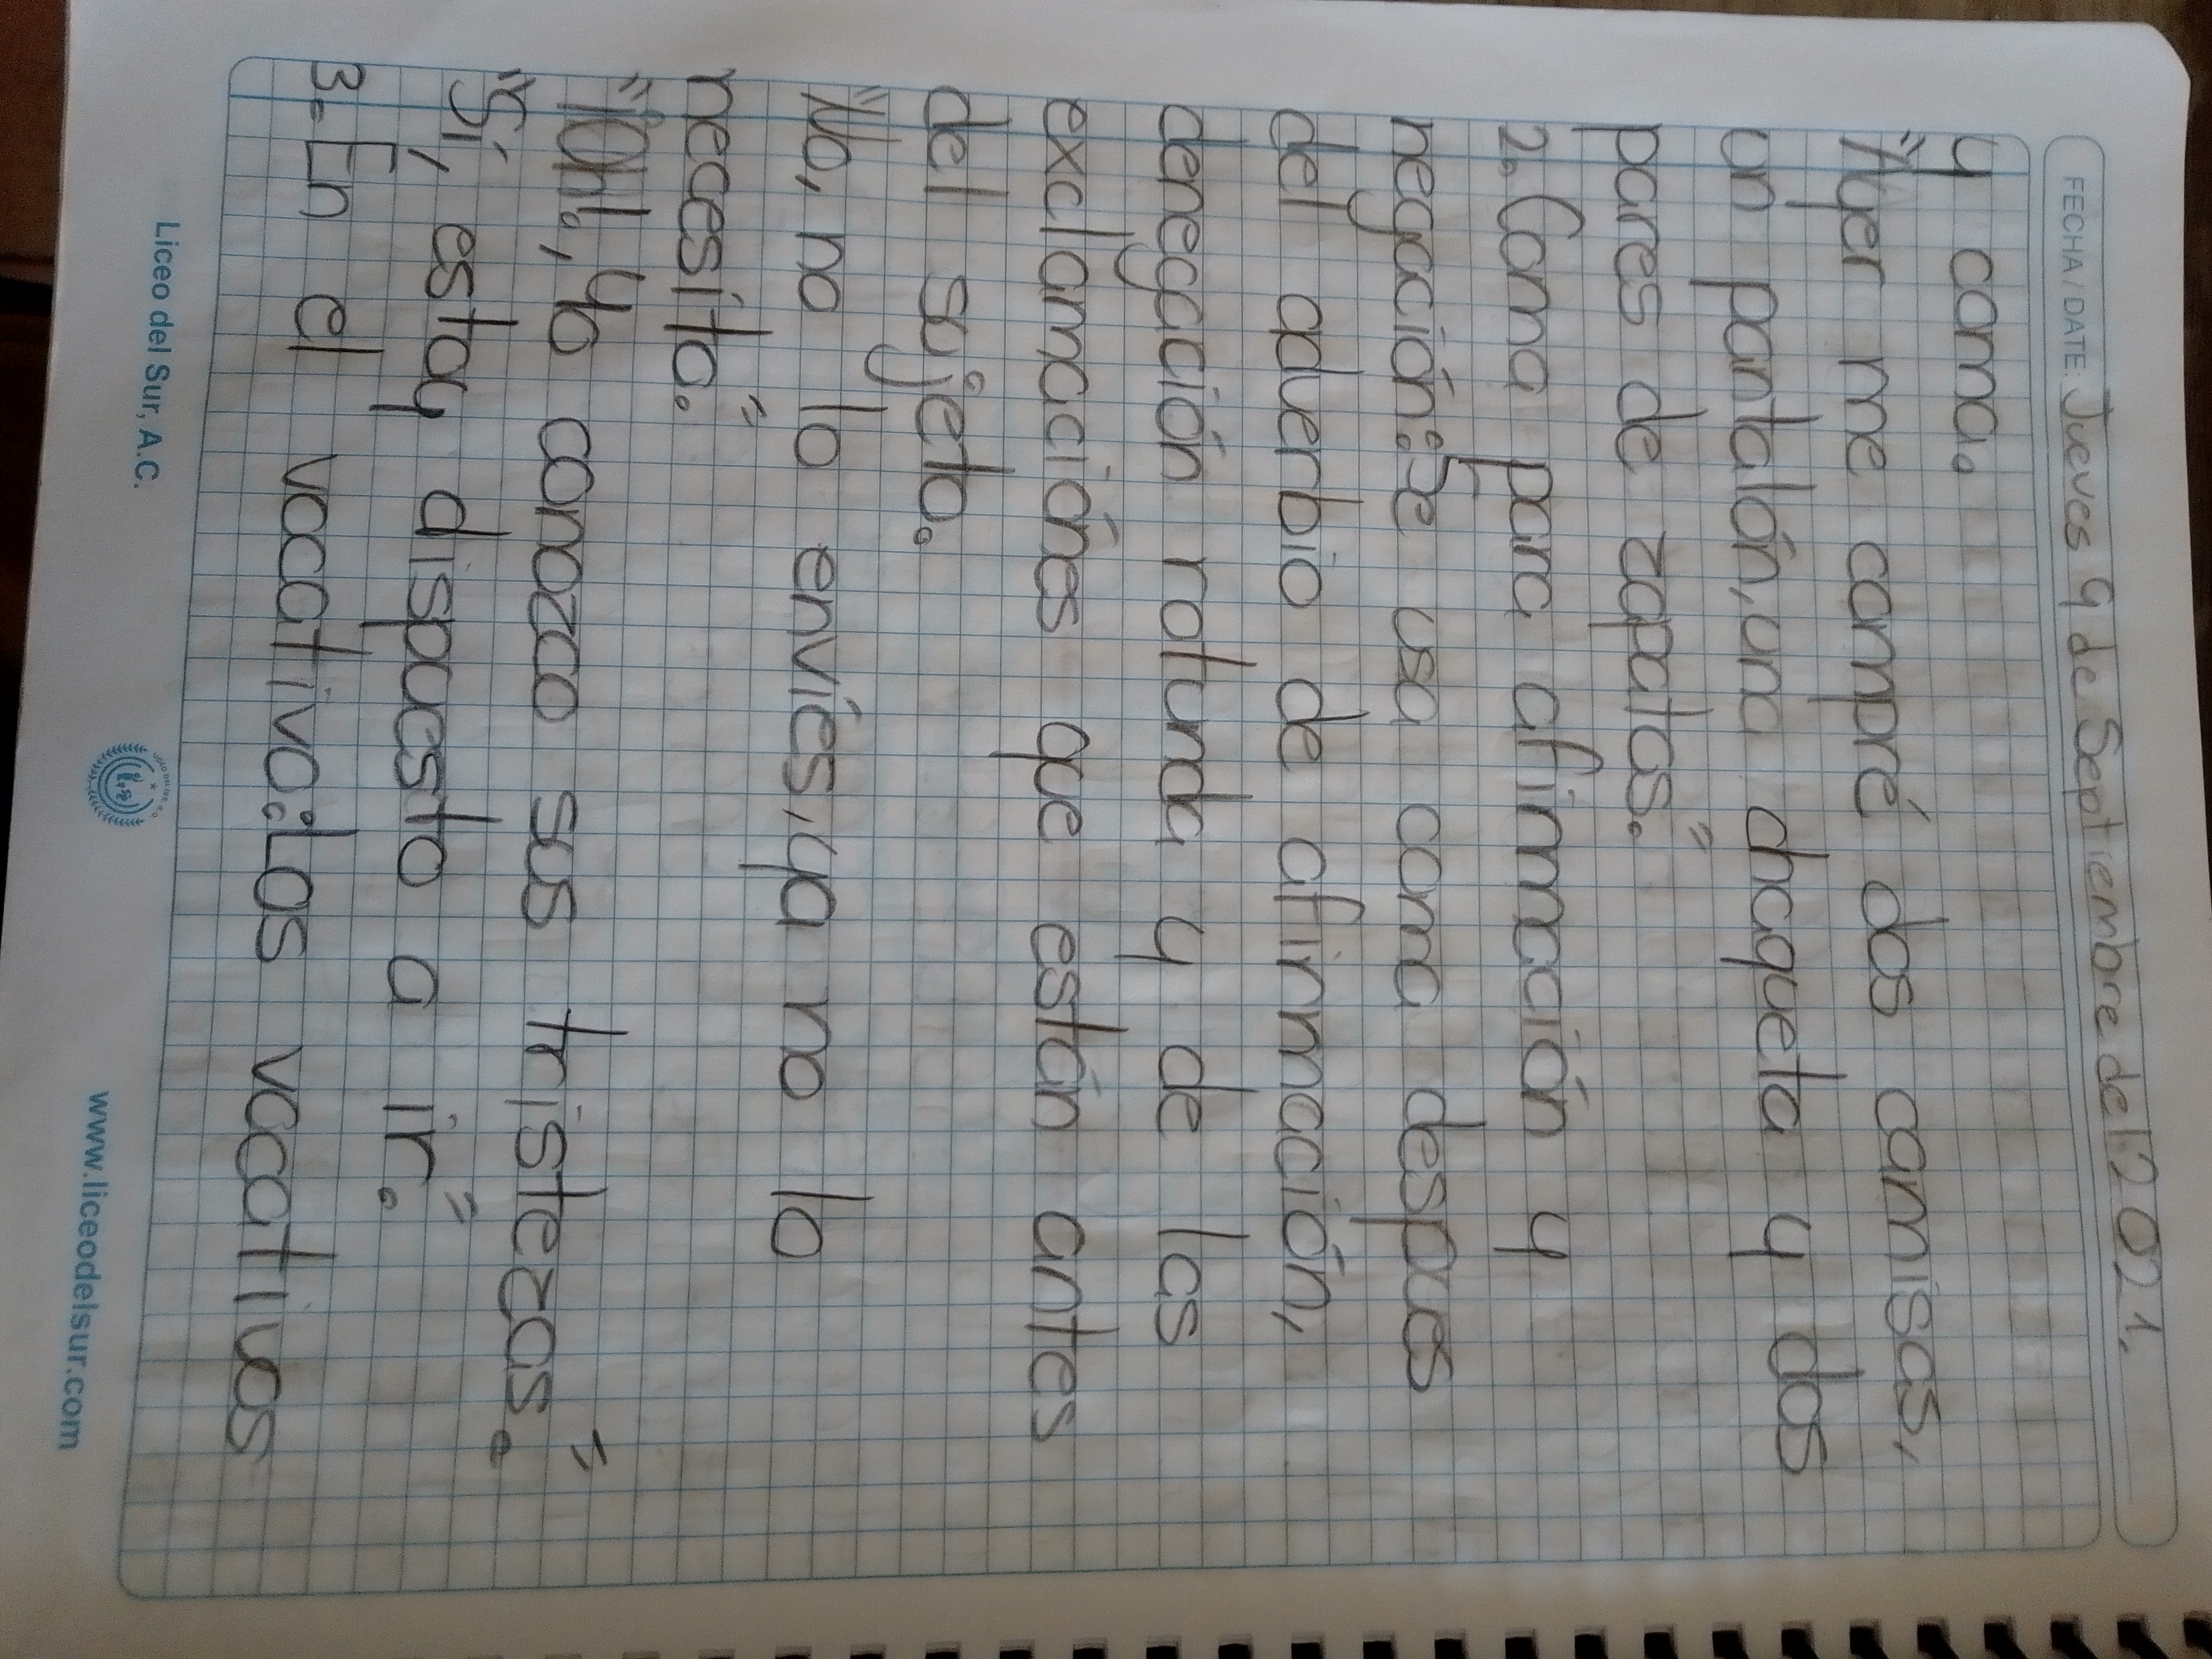 FECHA / DATE: Jueves 9 de Septiembre del 2021.
y coma.
"Ayer me compré dos camisas,
un pantalón, una chaqueta y dos
pares de zapatos."
2. Coma para afirmación y
negación: Se usa coma despues
del adverbio de afirmación,
denegación rotunda y de las
exclamaciónes que están antes
del sujeto.
"No, no lo enviés, ya no lo
necesito."
"¡Oh!, yo conozco sus tristezas."
"Sí, estoy dispuesto a ir."
3.- En el vocativo: Los vocativos
Liceo del Sur, A.C.
www.liceodelsur.com